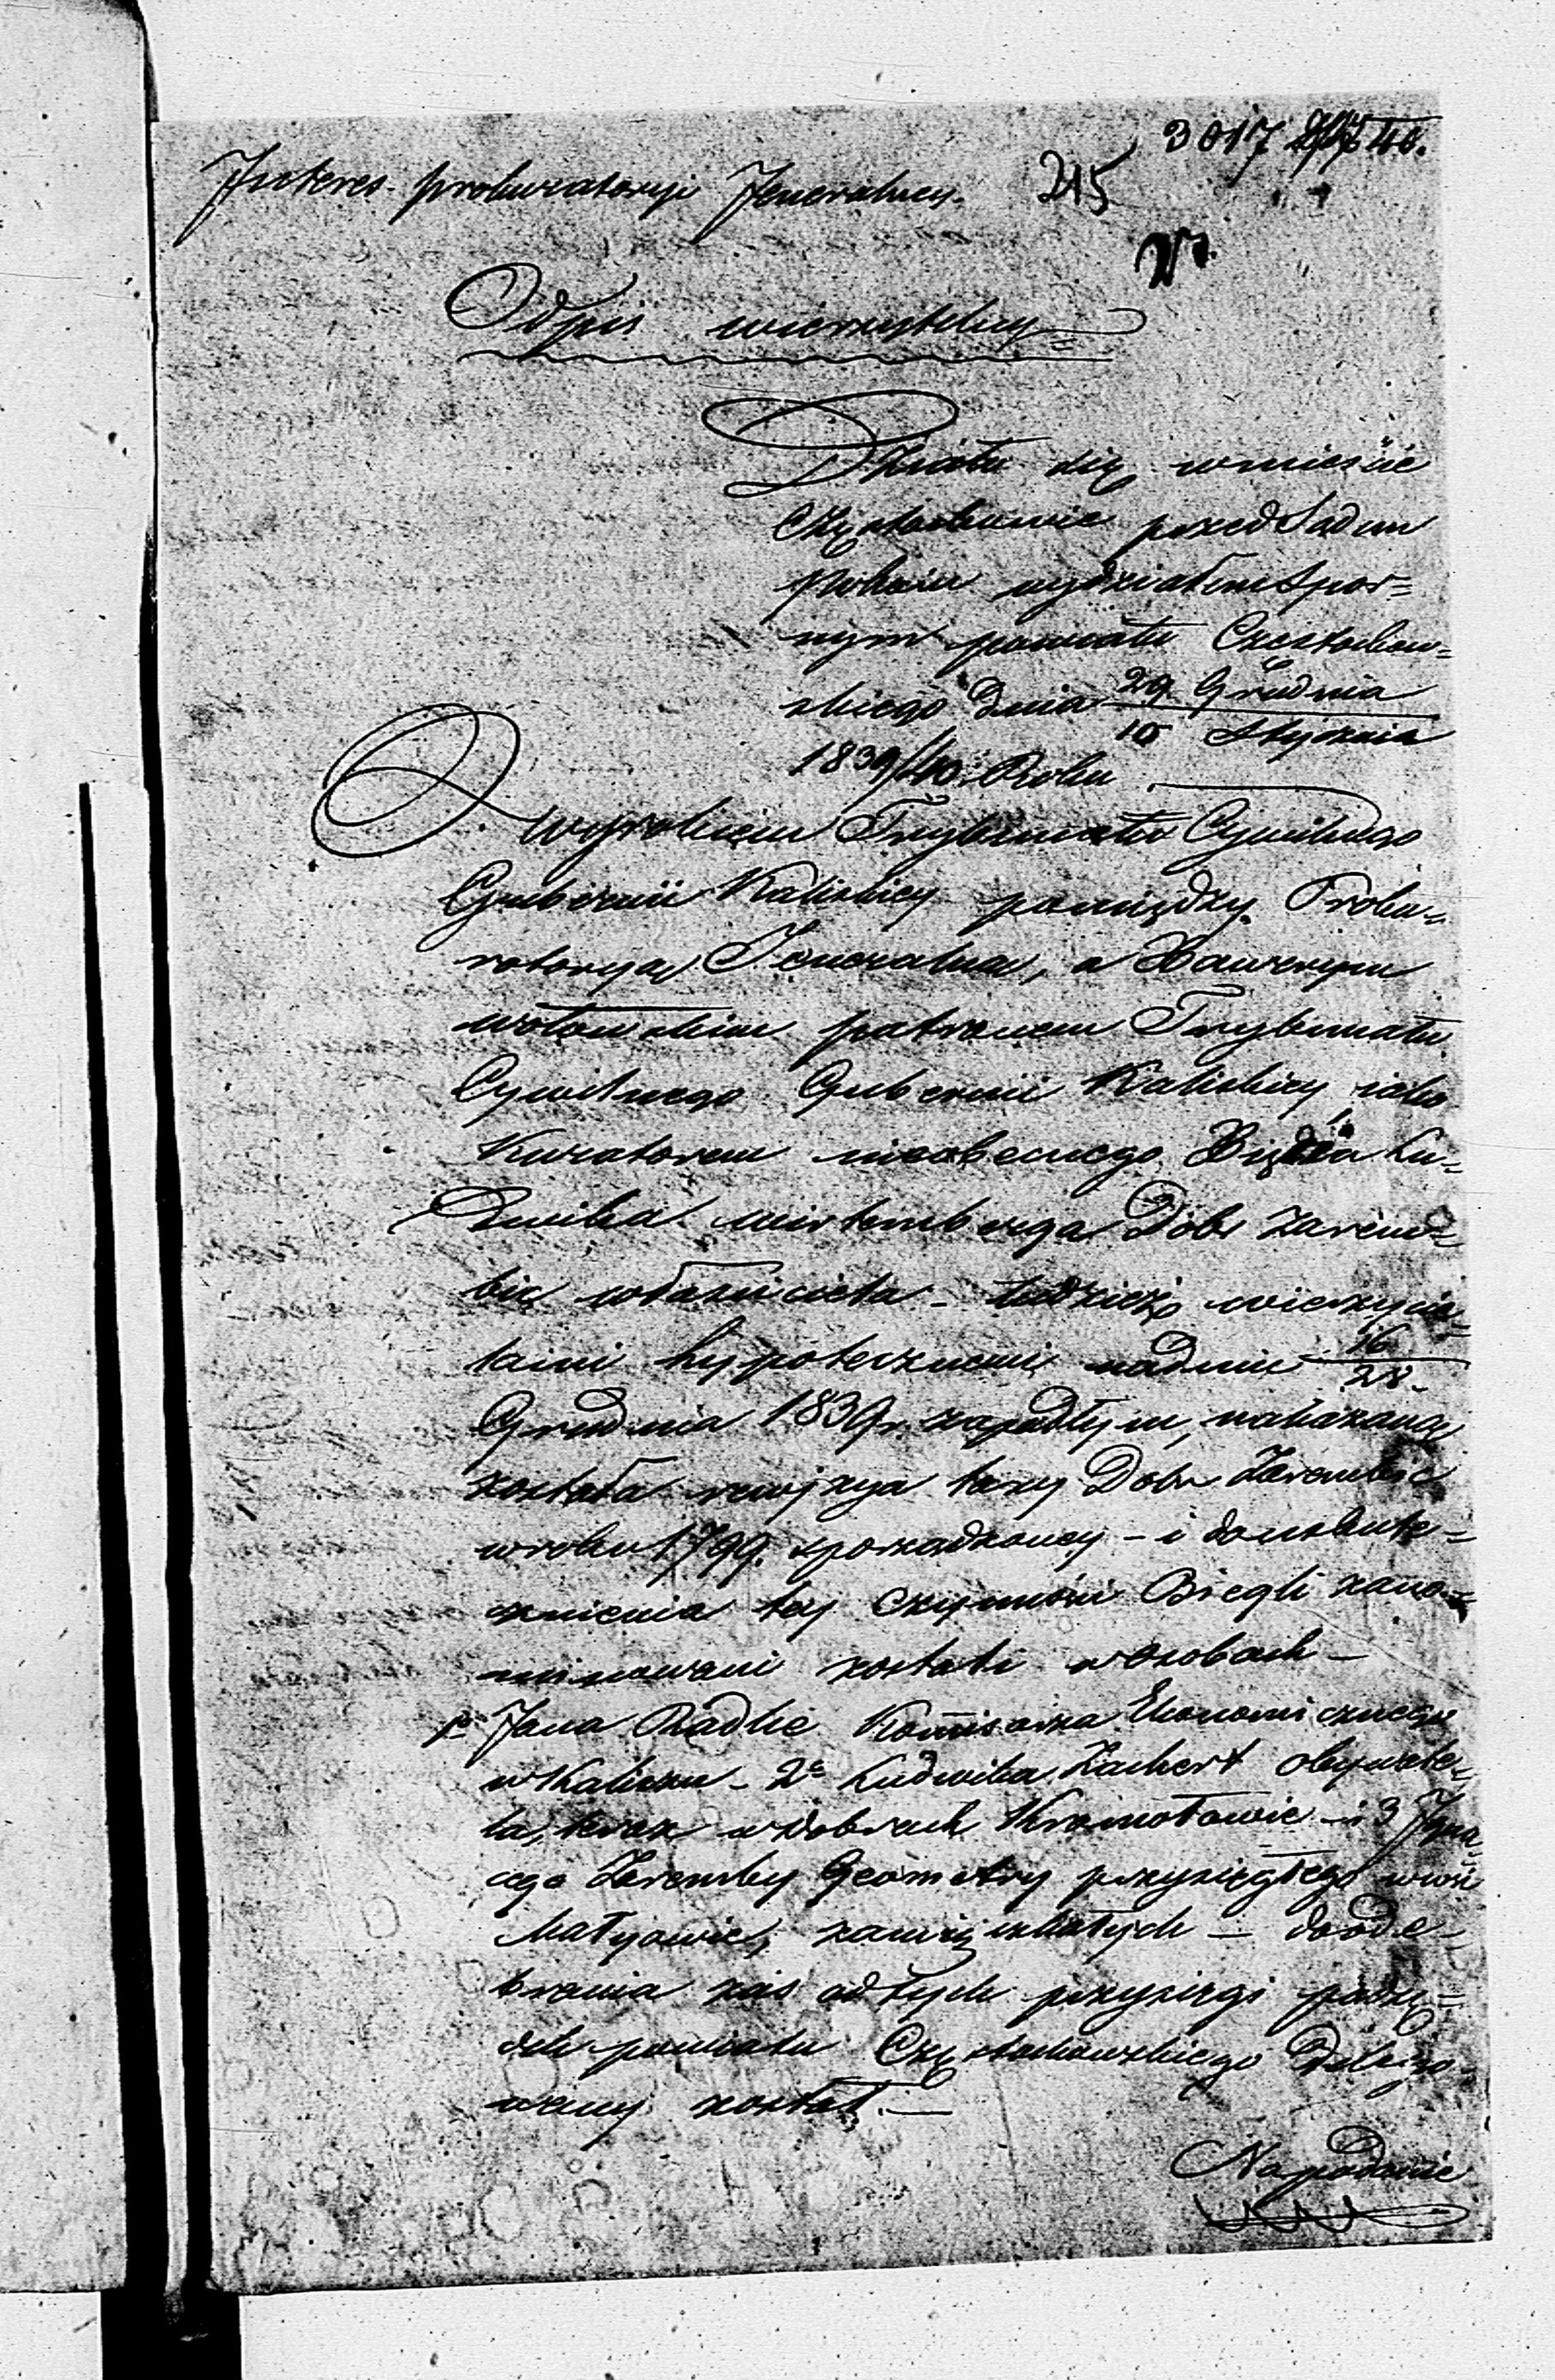 3017
Interes prokuratoryi Jeneralney. 215
Odpis wierzytelny
Działo się wmieście
Częstochowie przed Sądem
Pokoiu wydziałem Spor=
nym powiatu Częstochow=
skiego Dnia 29 Grudnia
10 Stycznia
1839/40. Roku
Wyrokiem Trybunału Cywilnego
Gubernii Kaliskiey pomiędzy Proku=
ratoryą Jeneralną, a Xawerym
Patronem Trybunału
Cywilnego Gubernii Kaliskiey iako
Kuratorem nieobecnego Xięcia Lu=
dwika Wirtemberga Dóbr Zarem=
bic właściciela – tudzież wierzycie=
lami hypotecznemi nadniu 16
28.
Grudnia 1839 r. zapadłym, nakazaną
została rewizya taxy Dóbr Zarembic
wroku 1799. sporządzoney – i do uskute=
cznienia tey czynności Biegli zano=
minowani zostali wosobach –
1o Jana Radke Kommissarza Ekonomicznego
w Kaliszu – 2o Ludwika Zachert obywate=
la, teraz w dobrach Kromołowie – i 3 Igna=
cego Zaremby Geometry przysięgłego wwsi
zamieszkałych – do ode=
brania zaś od tych przysięgi
powiatu Częstochowskiego Delego=
wany został. –
Na podanie